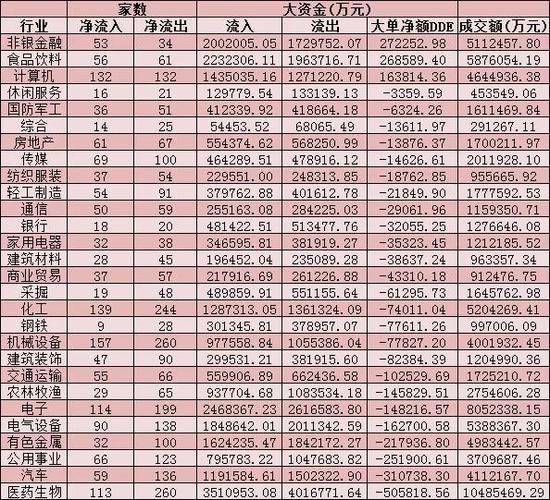 家数 大资金(万元)
行业 净流入 净流出 流入 流出 大单净额DDE 成交额(万元)
非银金融 53 34 2002005.05 1729752.07 272252.98 5112457.80
食品饮料 56 61 2232306.11 1963716.71 268589.40 5876054.19
计算机 132 132 1435035.16 1271220.79 163814.36 4644936.38
休闲服务 16 21 129779.54 133139.13 -3359.59 453549.06
国防军工 36 51 412339.92 418664.18 -6324.26 1611469.84
综合 14 25 54453.52 68065.49 -13611.97 291267.11
房地产 61 67 554374.62 568250.99 -13876.37 1700211.97
传媒 69 100 464289.51 478916.12 -14626.61 2011928.10
纺织服装 37 54 229551.00 248313.85 -18762.85 955665.92
轻工制造 54 91 379762.88 401612.78 -21849.90 1777592.53
通信 50 59 255163.08 284225.03 -29061.96 1159350.71
银行 18 20 481422.51 513477.76 -32055.25 1276646.08
家用电器 32 38 346595.81 381919.27 -35323.45 1212185.52
建筑材料 28 45 196452.04 235089.28 -38637.24 963357.34
商业贸易 37 57 217916.69 261226.88 -43310.18 912476.75
采掘 19 48 489859.91 551155.64 -61295.73 1645762.98
化工 139 244 1287313.05 1361324.09 -74011.04 5204269.41
钢铁 9 28 301345.81 378957.07 -77611.26 997006.09
机械设备 157 260 977558.84 1055386.04 -77827.20 4001932.45
建筑装饰 47 90 299531.21 381915.60 -82384.39 1204990.36
交通运输 55 66 559906.89 662436.58 -102529.69 1725210.72
农林牧渔 29 65 937704.68 1083534.18 -145829.51 2754606.28
电子 114 199 2468367.23 2616583.80 -148216.57 8052338.15
电气设备 90 138 1848642.01 2011342.59 -162700.58 5388367.30
有色金属 32 100 1624235.47 1842172.27 -217936.80 4983442.57
公用事业 66 123 795783.22 1047683.82 -251900.61 3709687.46
汽车 59 136 1191584.61 1502322.90 -310738.30 4112167.70
医药生物 113 260 3510953.08 4016771.64 -505818.56 10485469.29